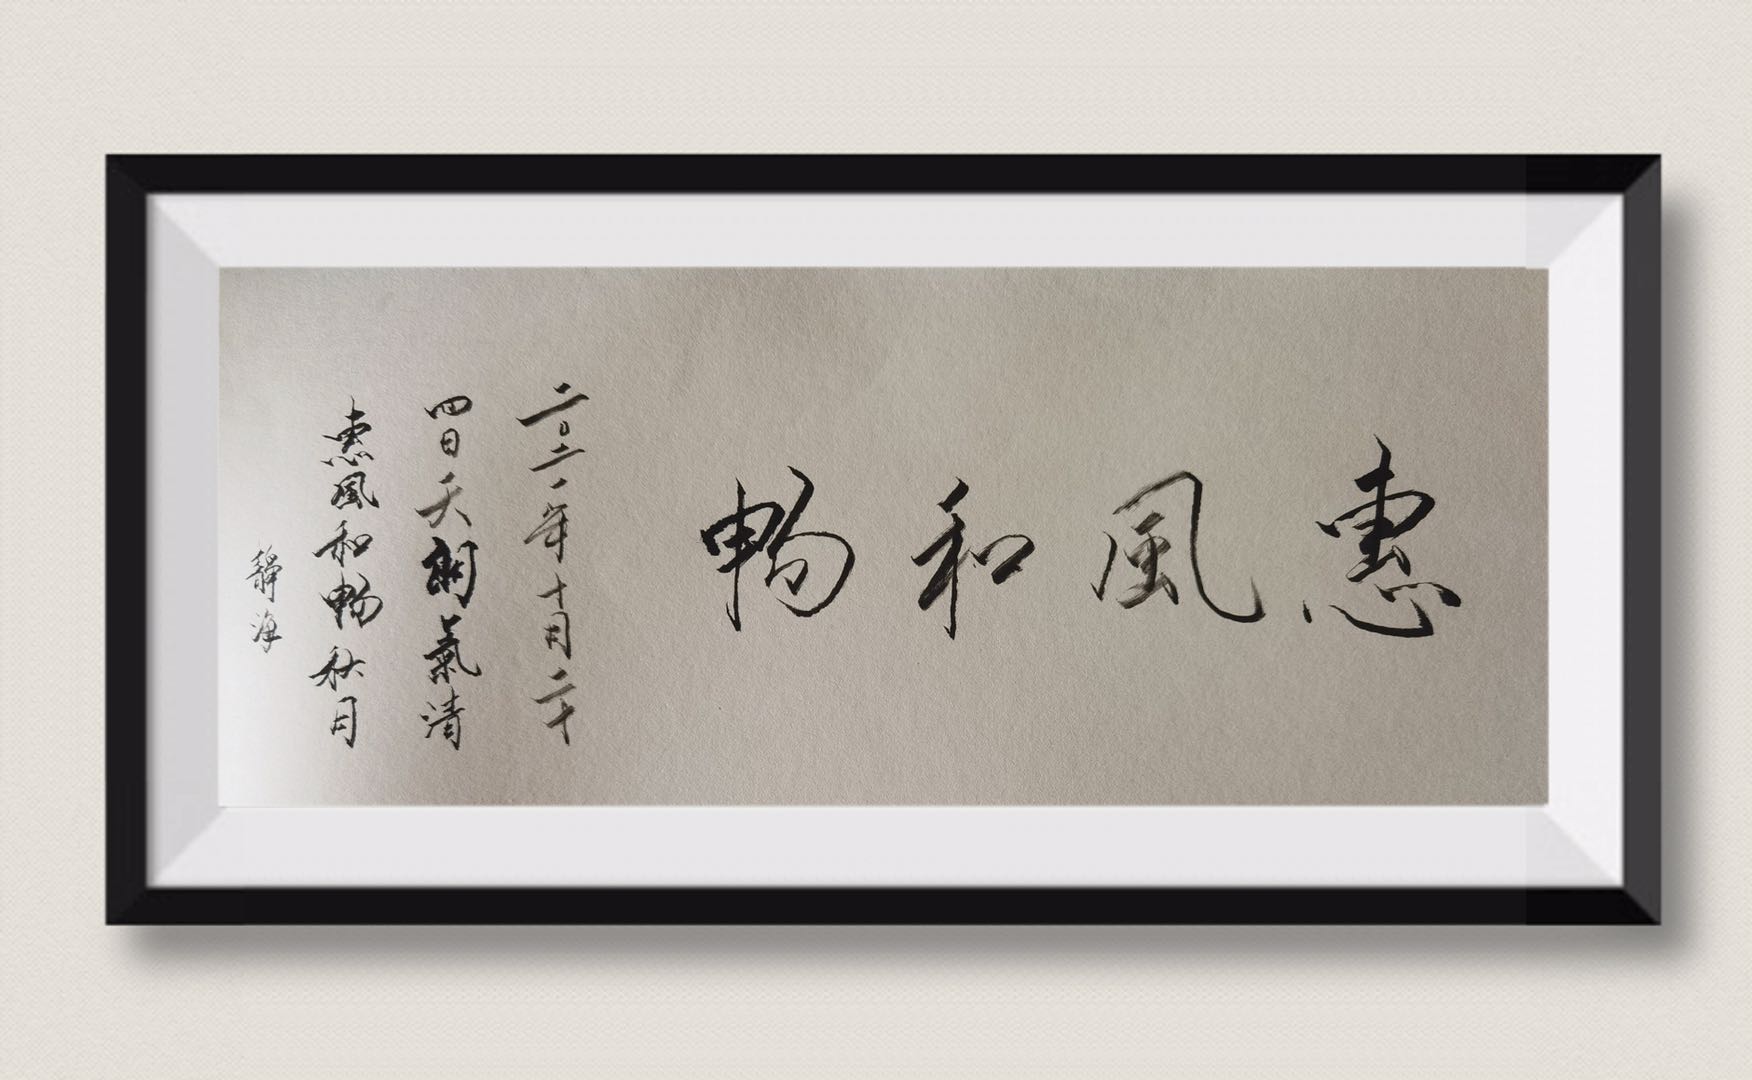 惠風和暢
二〇二一年十月二十
四日天朗氣清
惠風和暢秋月
靜海